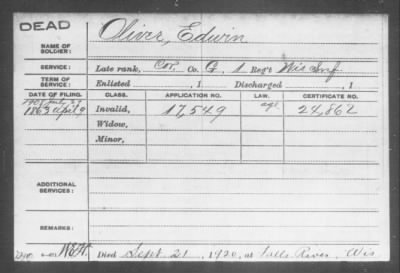 DEAD
NAME OF SOLDIER: Oliver, Edwin
SERVICE: Late rank, Cor, Co. G, 1 Reg't Wis Inf.
TERM OF SERVICE: Enlisted , 1 Discharged , 1
DATE OF FILING. CLASS. APPLICATION NO. LAW. CERTIFICATE NO.
1907
1863 April 9 Invalid, 17,549 age 24,862
Widow,
Minor,
ADDITIONAL SERVICES:
REMARKS:
Died Sept 21, 1920, at Falls River, Wis